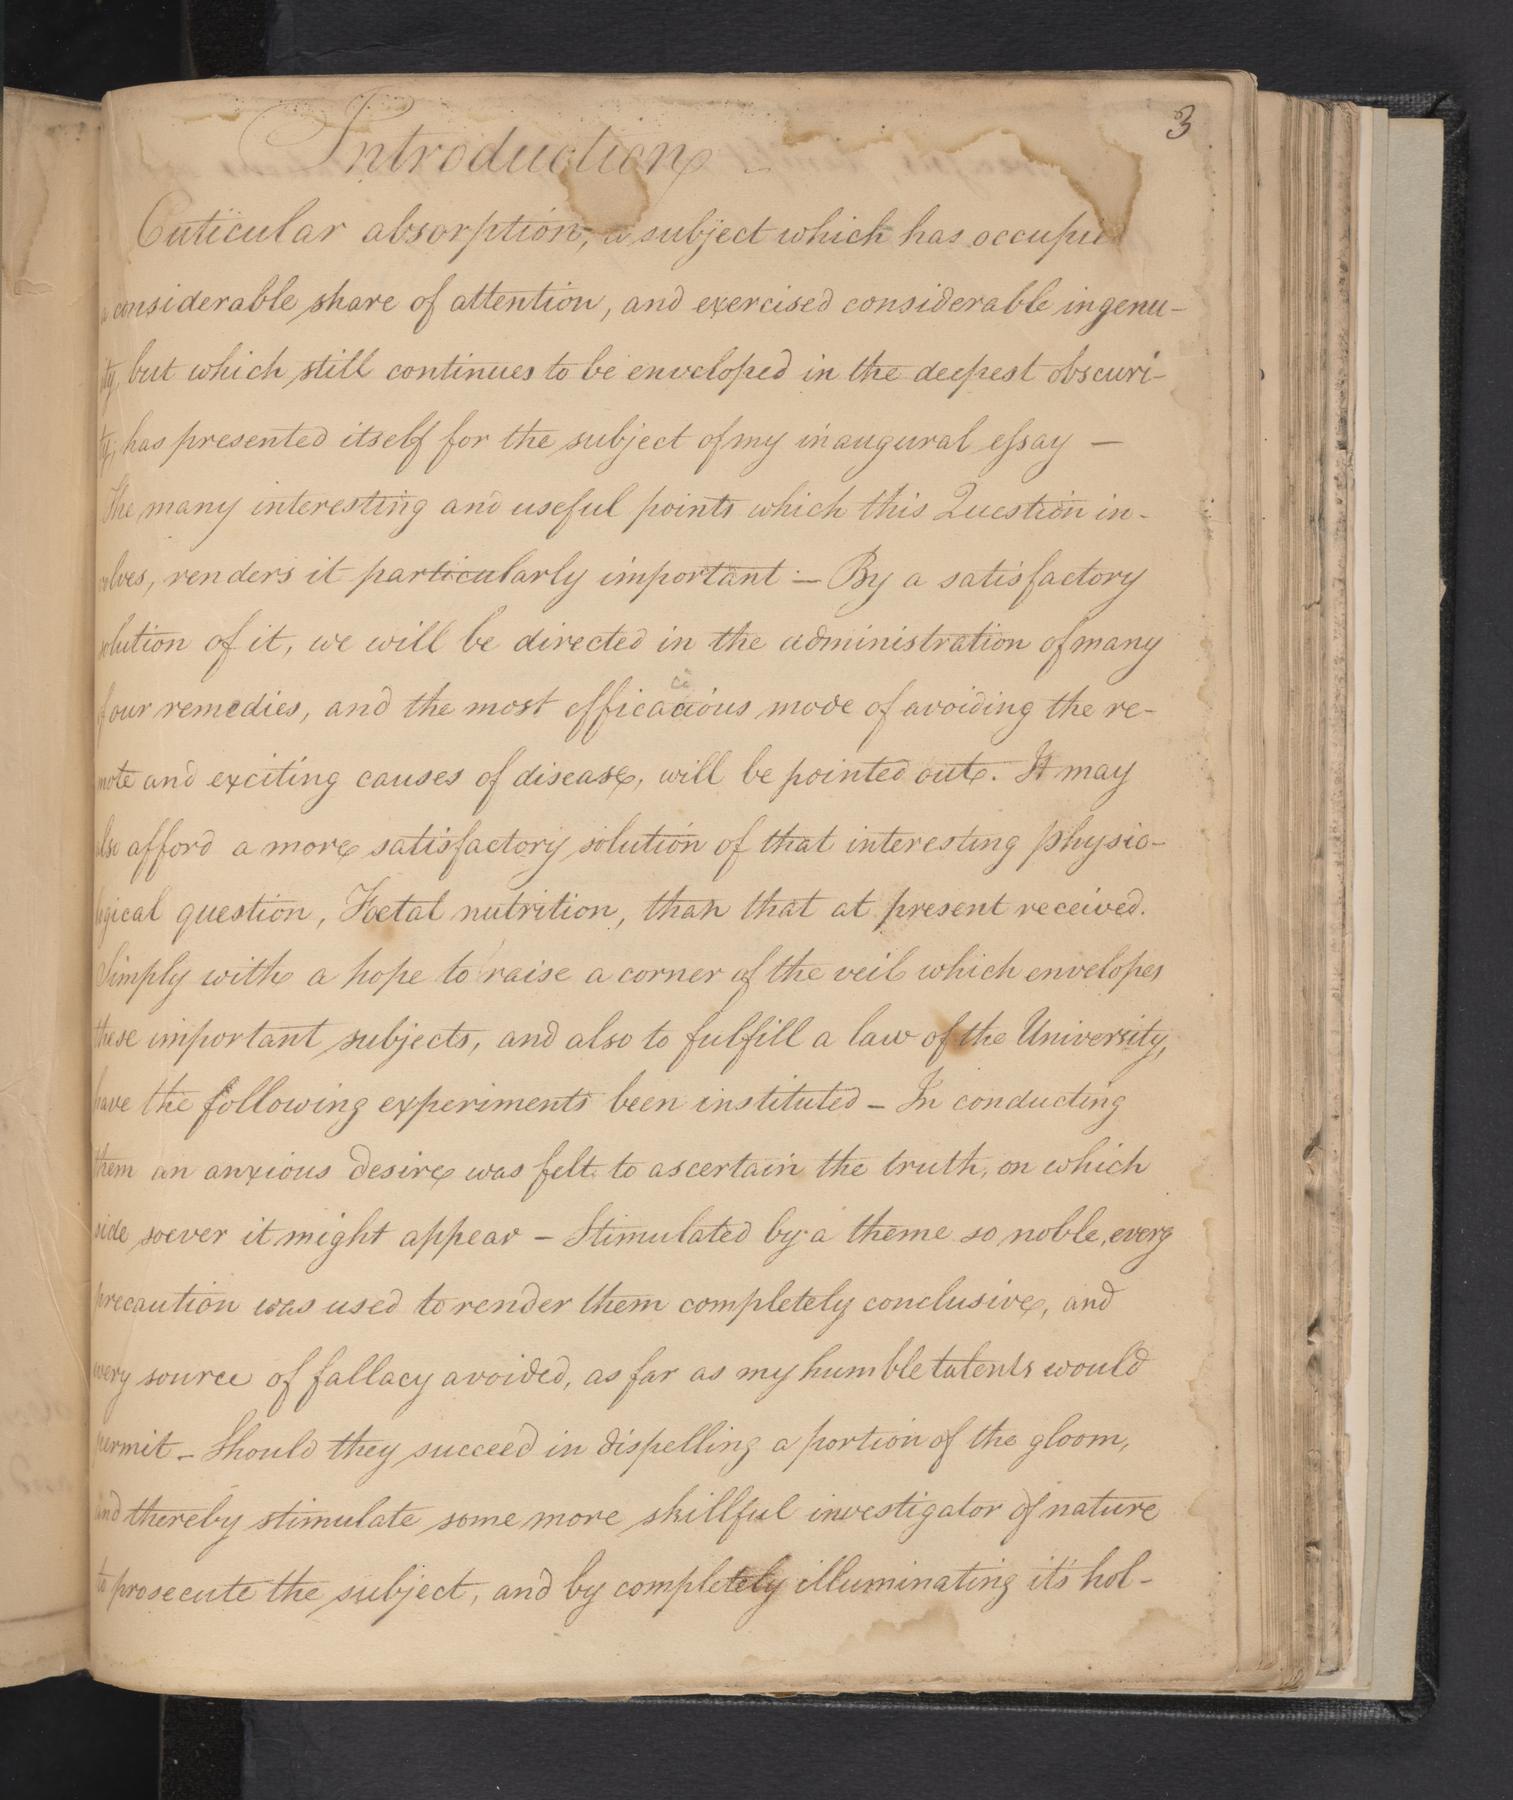 3
Introduction -
Cuticular absorption, a subject which has occupied
a considerable share of attention, and exercised considerable ingenu-
ity, but which still continues to be enveloped in the deepest obscuri-
ty; has presented itself for the subject of my inaugural essay —
The many interesting and useful points which this Question in-
volves, renders it particularly important — By a satisfactory
solution of it, we will be directed in the administration of many
of our remedies, and the most efficacious mode of avoiding the re-
mote and exciting causes of disease, will be pointed out. It may
also afford a more satisfactory solution of that interesting physio-
logical question, Foetal nutrition, than that at present received.
Simply with a hope to raise a corner of the veil which envelopes
these important subjects, and also to fulfill a law of the University,
have the following experiments been instituted — In conducting
them an anxious desire was felt to ascertain the truth, on which
side soever it might appear — Stimulated by a theme so noble, every
precaution was used to render them completely conclusive, and
every source of fallacy avoided, as far as my humble talents would
permit — Should they succeed in dispelling a portion of the gloom,
and thereby stimulate some more skillful investigator of nature
to prosecute the subject, and by completely illuminating it's hol-